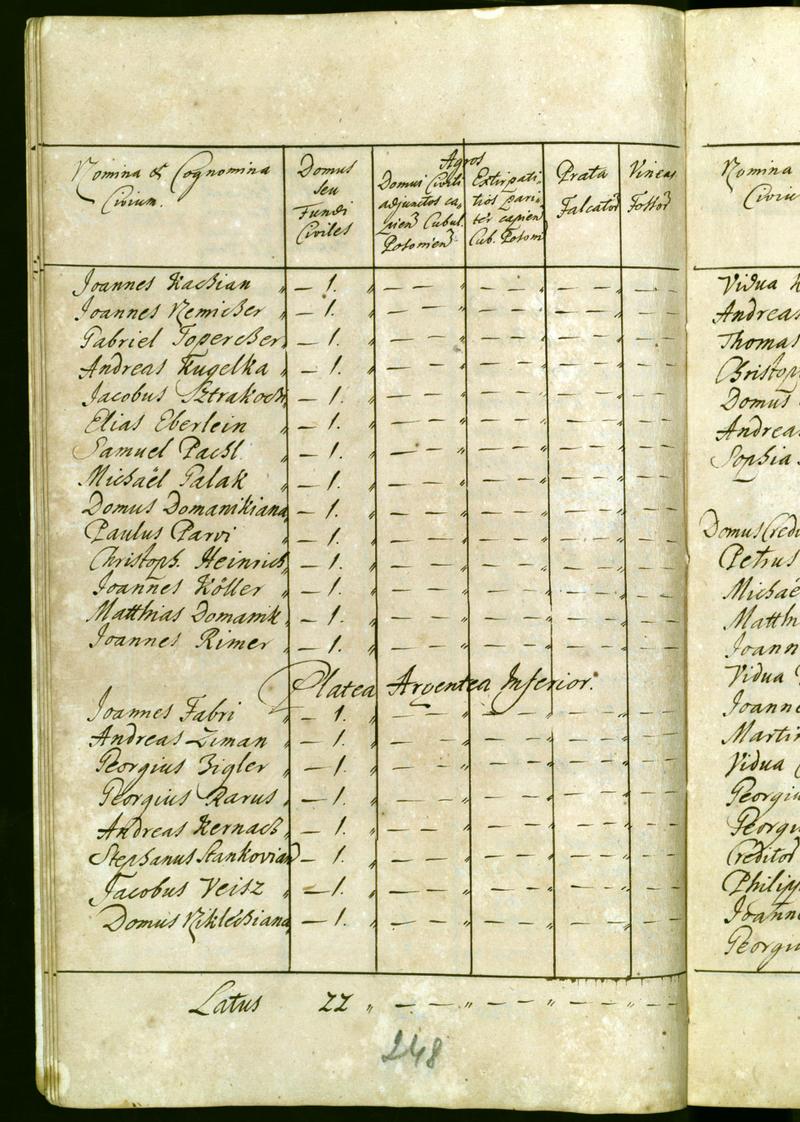 Nomina & Cognomina
Civium.
Domus
seu
Fundi
Civiles
Agros
Domui Civili
adjunctos ca-
pien Cubul.
Posonien
Extirpati-
tios pari-
ter capien
Cub. Posoni
Prata
Falcator
Vineas
Fossor
Joannes Kachian " — 1. " — — " — — " — — " — —
Joannes Nemicher " — 1. " — — " — — " — — " — —
Gabriel Topercher " — 1. " — — " — — " — — " — —
Andreas Kugelka " — 1. " — — " — — " — — " — —
Jacobus — 1. " — — " — — " — — " — —
Elias Eberlein " — 1. " — — " — — " — — " — —
Samuel Pachl " — 1. " — — " — — " — — " — —
Michaël Galak " — 1. " — — " — — " — — " — —
Domus Domanikiana " — 1. " — — " — — " — — " — —
Paulus Parvi " — 1. " — — " — — " — — " — —
Christoph. Heinrich " — 1. " — — " — — " — — " — —
Joannes Köller " — 1. " — — " — — " — — " — —
Matthias Domanik " — 1. " — — " — — " — — " — —
Joannes Rimer " — 1. " — — " — — " — — " — —
Platea Argentea Inferior.
Joannes Fabri " — 1. " — — " — — " — — " — —
Andreas Ziman " — 1. " — — " — — " — — " — —
Georgius Zigler " — 1. " — — " — — " — — " — —
Georgius Rarus " — 1. " — — " — — " — — " — —
Andreas Kernach " — 1. " — — " — — " — — " — —
Stephanus Stankovian — 1. " — — " — — " — — " — —
Jacobus Veisz " — 1. " — — " — — " — — " — —
Domus — 1. " — — " — — " — — " — —
Latus 22 " — — " — — " — — " — —
248
Nomina
Civiu
Vidua
Andreas
Thomas
Christop
Domus
Andrea
Sophia
Domus Credi
Petrus
Michaë
Matth
Joann
Vidua
Joanne
Martin
Vidua
Georgiu
Georgi
Creditor
Philipp
Joanne
Georgiu